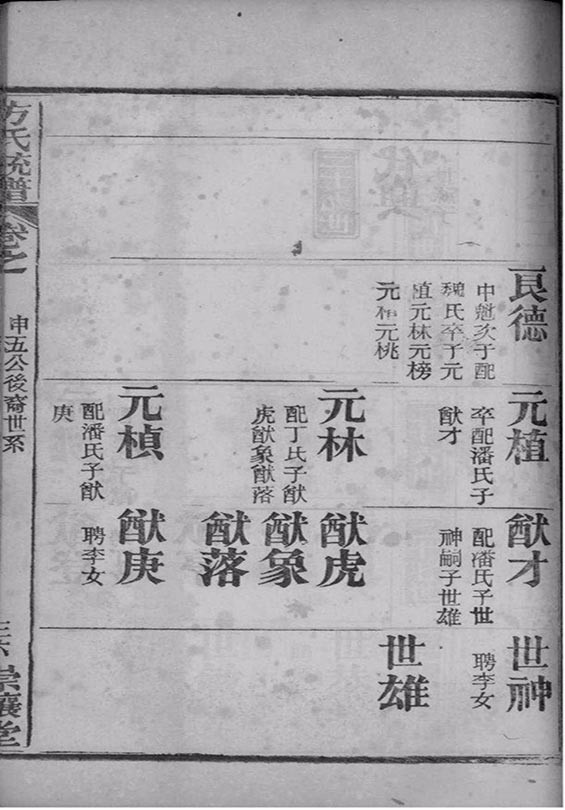 良德
中魁次子配
魏氏卒子元
植元林元榜
元楨元桃
元植
卒配潘氏子
猷才
元林
配丁氏子猷
虎猷象猷落
元楨
配潘氏子猷
庚
猷才
配潘氏子世
神嗣子世雄
猷虎
猷象
猷落
猷庚
聘李女
世神
聘李女
世雄
方氏統譜
卷之
申五公後裔世系
崇讓堂